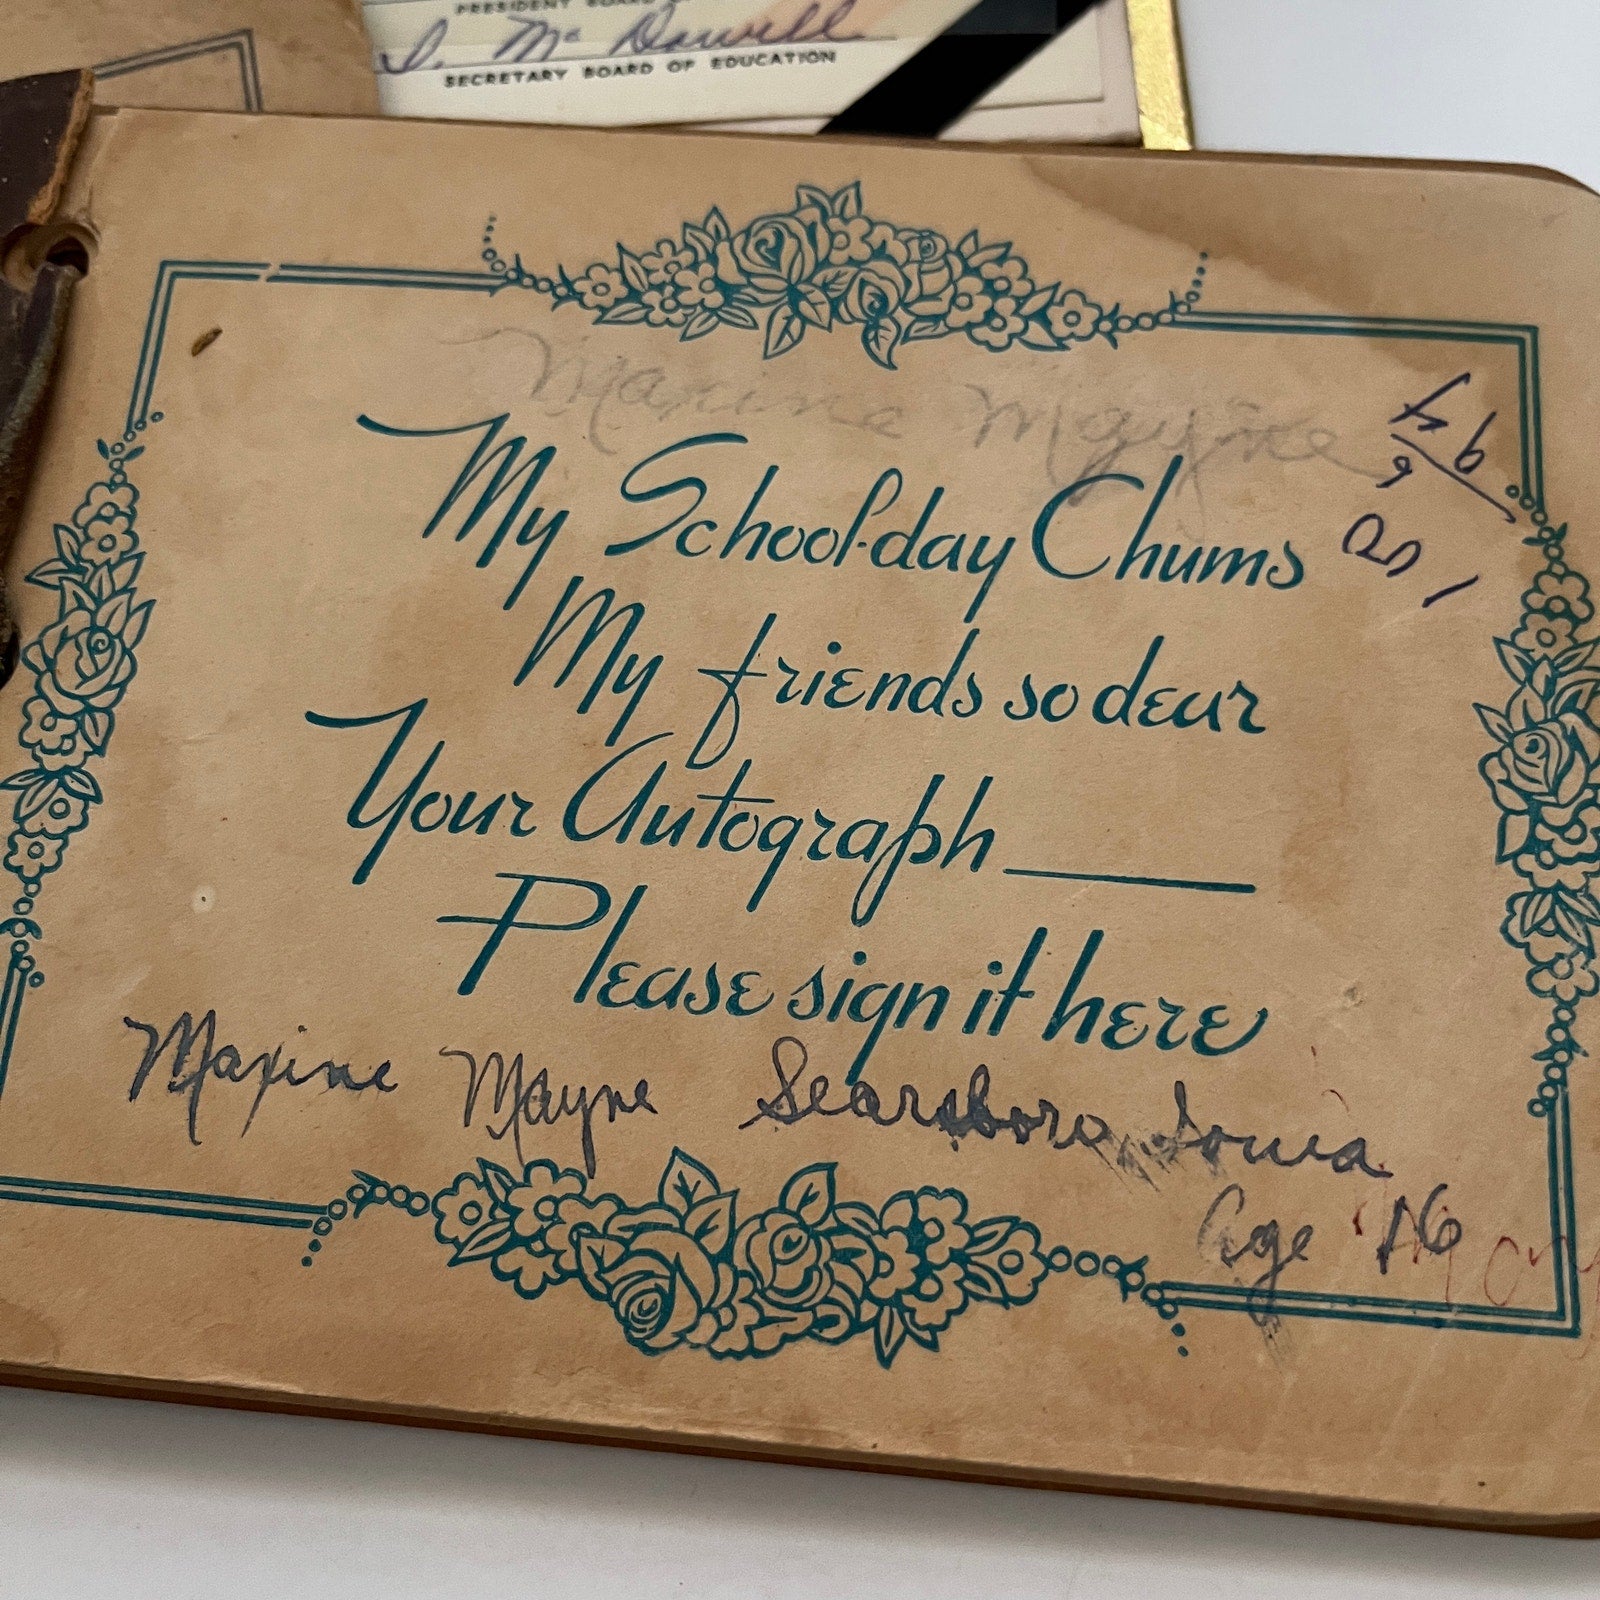 PRESIDENT BOARD
I. McDowell
SECRETARY BOARD OF EDUCATION
Maxine Mayne
My School-day Chums
My friends so dear
Your Autograph
Please sign it here
Maxine Mayne Searsboro, Iowa
Age 16